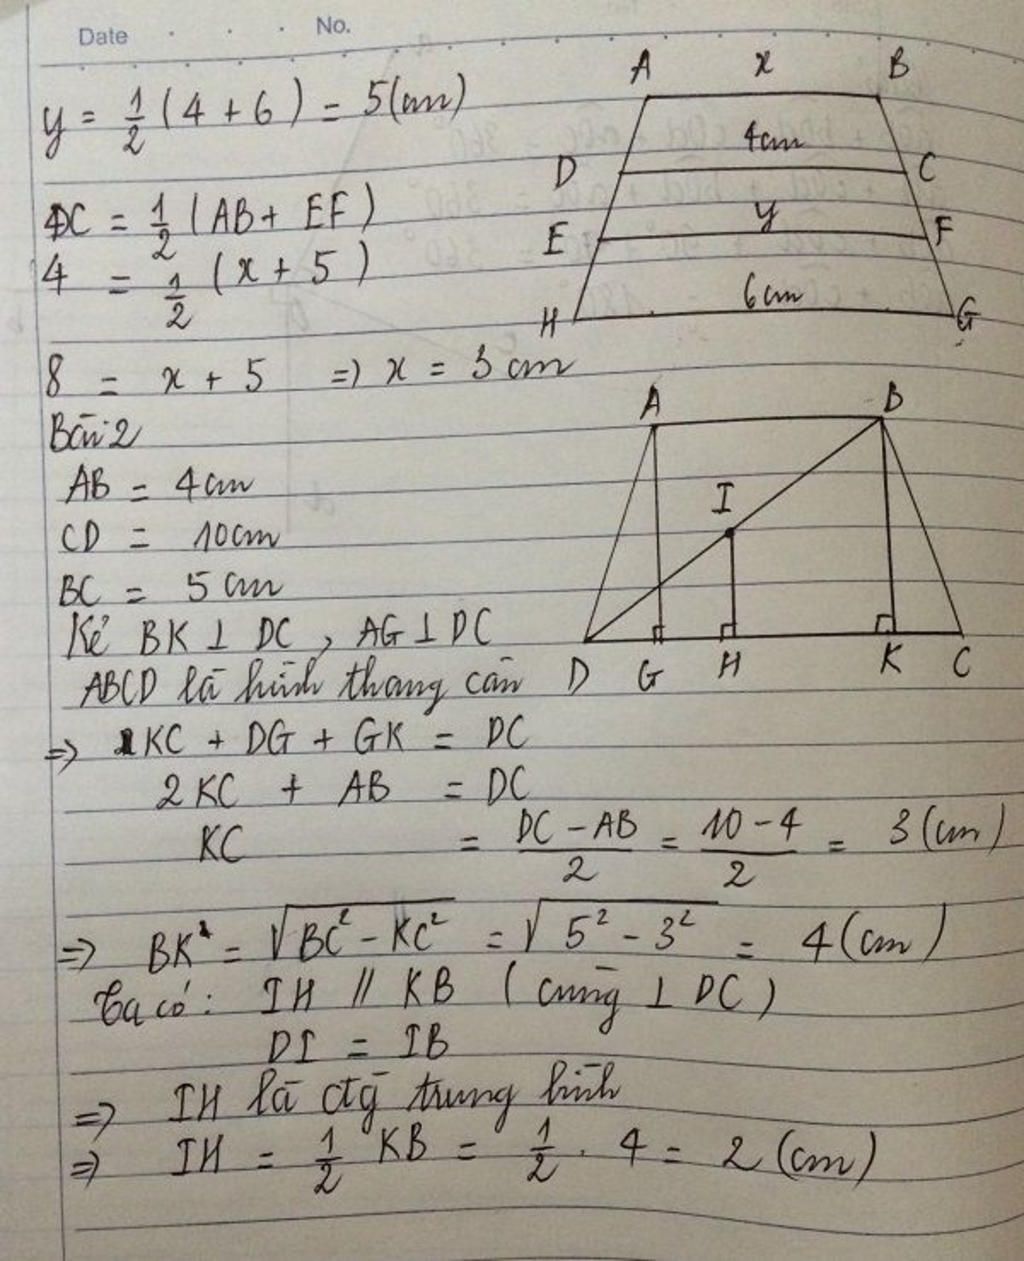 Date No.
y = 1/2 (4 + 6) = 5 (cm)
DC = 1/2 (AB + EF)
4 = 1/2 (x + 5)
8 = x + 5 => x = 3 cm
A x B
D 4cm C
E y F
H 6cm G
Bài 2
AB = 4cm
CD = 10cm
BC = 5 cm
Kẻ BK ⊥ DC, AG ⊥ DC
ABCD là hình thang cân
A B
I
D G H K C
=> KC + DG + GK = DC
2KC + AB = DC
KC = (DC - AB)/2 = (10 - 4)/2 = 3 (cm)
=> BK² = √(BC² - KC²) = √(5² - 3²) = 4 (cm)
Ta có: IH // KB (cùng ⊥ DC)
DI = IB
=> IH là đg trung bình
=> IH = 1/2 KB = 1/2 . 4 = 2 (cm)